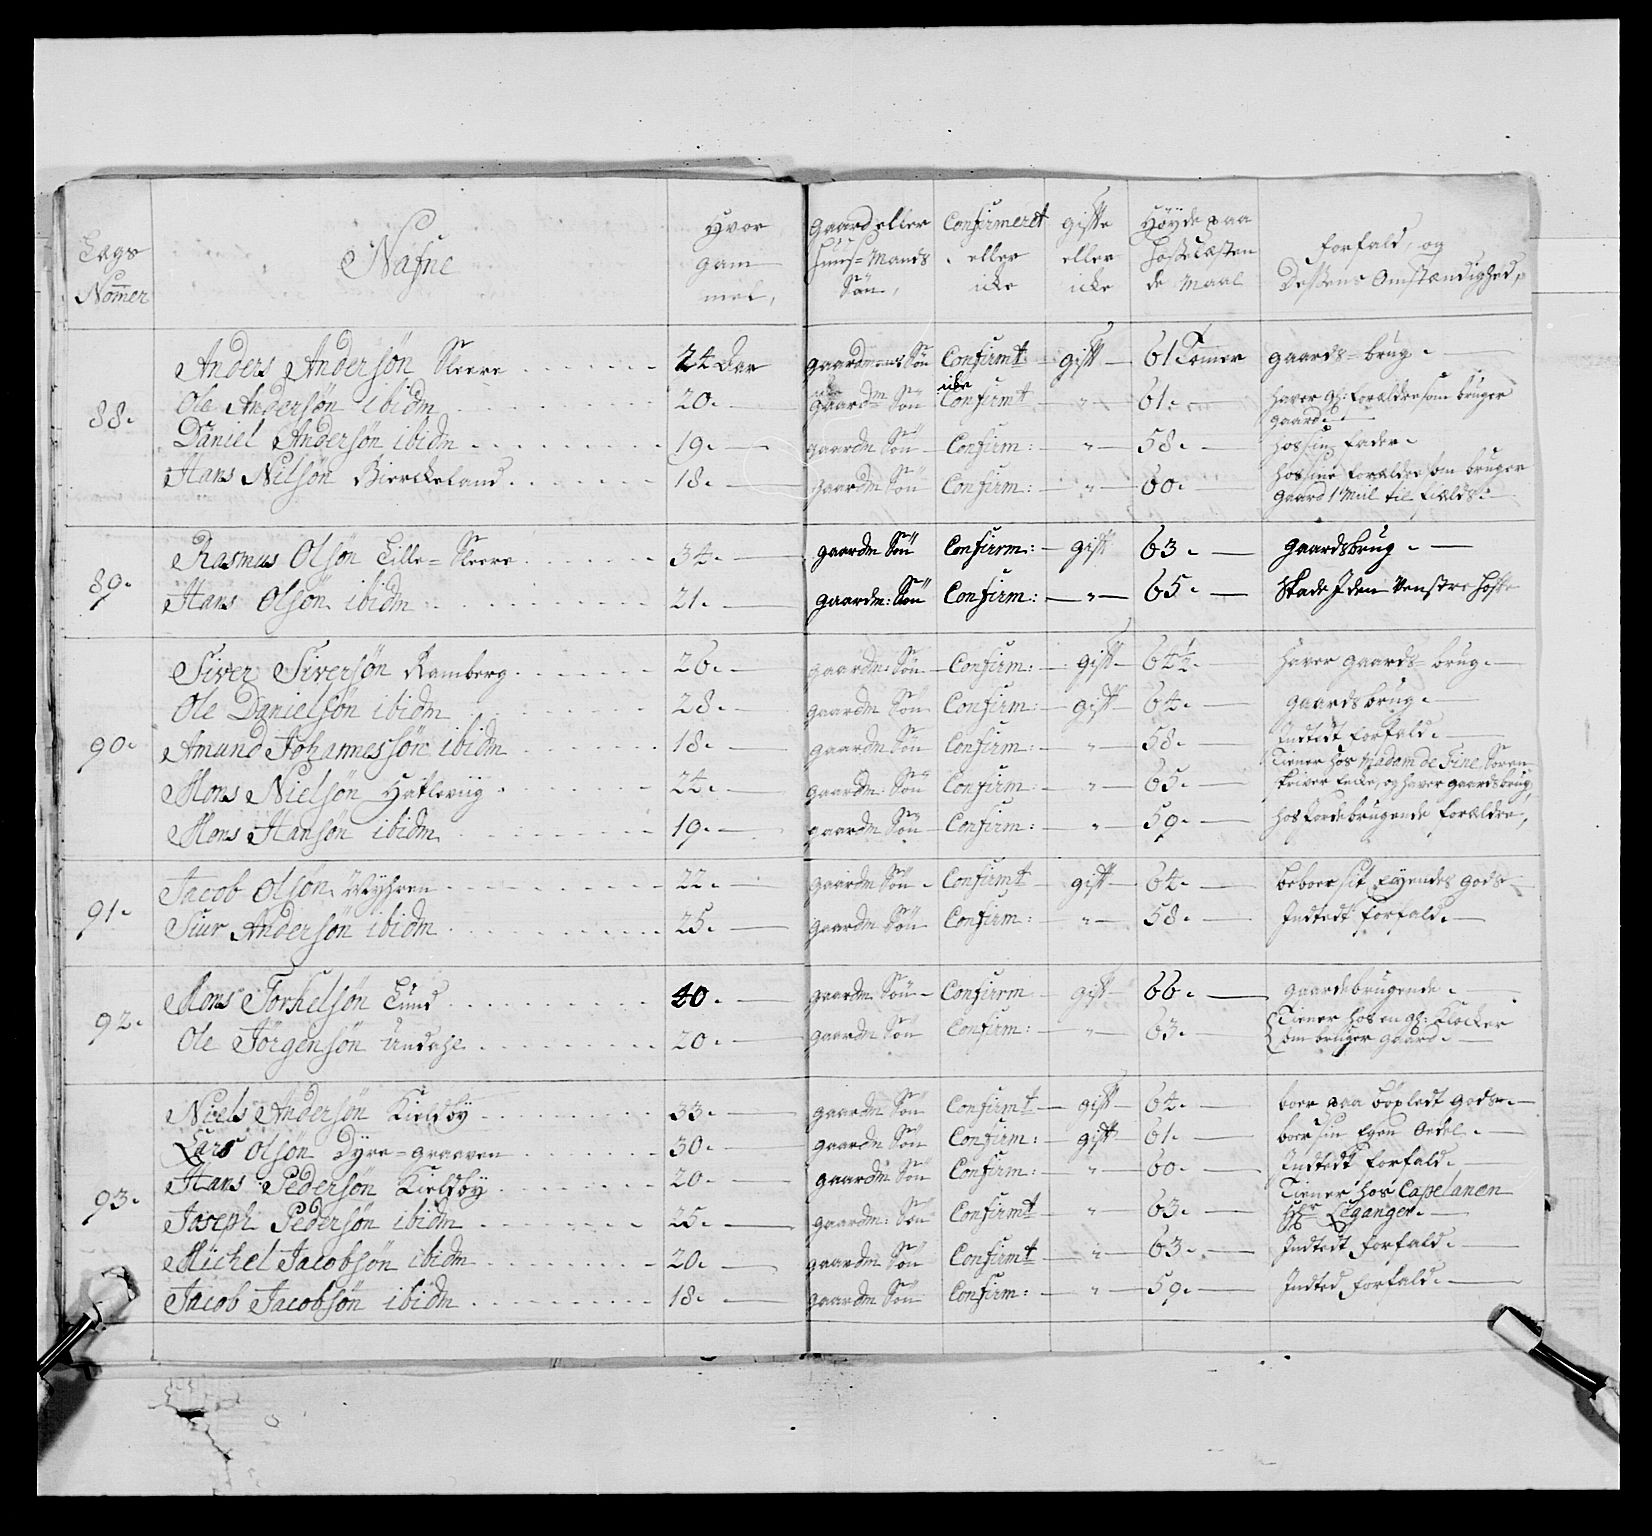 Lags Nom̄er | Nafne | Hvor gam mel, | Gaard eller Huus=Mands Søn, | Confirmeret eller icke | gifte eller icke | Höyde paa Hosselæsten de Maal | Forfald, og Deßens Omstændighed,
88. | Anders Andersön Sleere | 24 Aar | gaardmands Sön | Confirmt | gift | 61 Tomer | gaards=brug.
Ole Andersön ibidm | 20. | gaardm Sön | icke Confirmt | " | 61. | haver gl: forældre som bruger gaard.
Daniel Andersön ibidm | 19. | gaardm Sön | Confirm: | " | 58. | hos sin fader.
Hans Nilsön Bierckeland | 18. | gaardm Sön | Confirm: | " | 60. | hos sine forældre som bruger gaard 1 Miil til fields.
89. | Rasmus Olsön Lille=Sleere | 34. | gaardm Sön | Confirm: | gift | 63. | gaardsbrug.
Hans Olsön ibidm | 21. | gaardm: Sön | Confirm: | " | 65. | Skade I den Venstre Hofte
90. | Siver Siversön Ramberg | 26. | gaardm: Sön | Confirm: | gift | 64¼. | haver gaards=brug.
Ole Danielsön ibidm | 28. | gaardm Sön | Confirm: | gift | 64. | gaardsbrug.
Amund Johannessön ibidm | 18. | gaardm Sön | Confirm: | " | 58. | Indtedt forfald.
Mons Nielsön Hatleviig | 24. | gaardm: Sön | Confirm: | " | 65. | Tiener hos Madam de Fine Soren skriver Encke, og haver gaardsbrug,
Mons Hansön ibidm | 19. | gaardm Sön | Confirm: | " | 59. | hos Jordebrugende forældre,
91. | Jacob Olsön | 22. | gaardm Sön | Confirmt | gift | 64. | beboer sit Eyendes gods
Siur Andersön ibidm | 25. | gaardm Sön | Confirm: | " | 58. | Indtedt forfald.
92. | Mons Torkelsön Lund | 40. | gaardm. Sön | Confirm | gift | 66. | gaardebrugende.
Ole Jörgensön Undahl | 20. | gaardm Sön | Confirm: | " | 63. | Tiener hos en gl: Klocker som bruger gaard.
93. | Niels Andersön Kieldby | 33. | gaardm Sön | Confirmt | gift | 64. | boer paa böxledt gods.
Lars Olsön Dyre=graaven | 30. | gaardm Sön | Confirm: | gift | 61. | boer sin Egen Oedel.
Hans Pedersön Kieldby | 20. | gaardm Sön | Confirm: | " | 60. | Indtedt forfald.
Joseph Pedersön ibidm | 25. | gaardm: Sön | Confirmt | " | 63. | Tiener hos Capelanen Hr Leganger.
Michel Jacobsön ibidm | 20. | gaardm Sön | Confirmt | " | 63. | Indtedt forfald.
Jacob Jacobsön ibidm | 18. | gaardm Sön | Confirm: | " | 59. | Indted forfald.